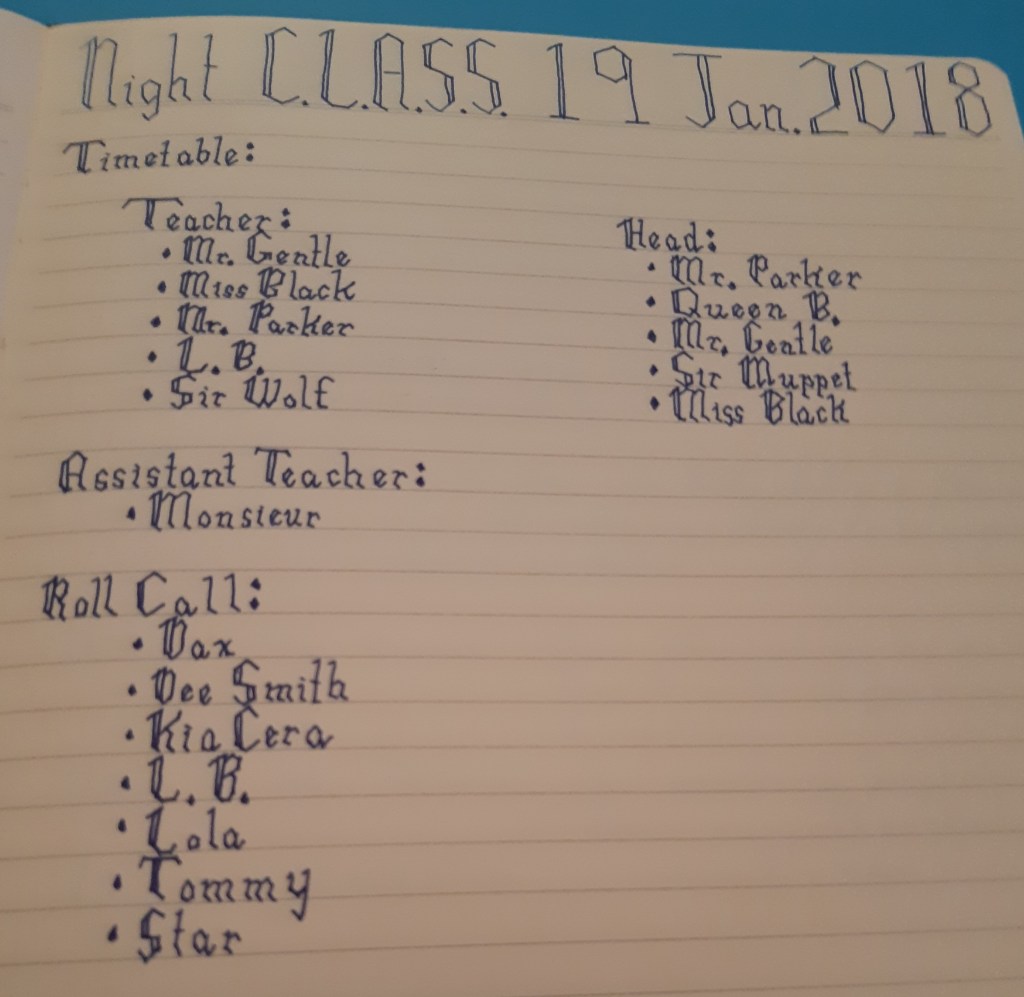 Night C.L.A.S.S. 19 Jan. 2018
Timetable:
Teacher:
• Mr. Gentle
• Miss Black
• Mr. Parker
• L. B.
• Sir Wolf
Head:
• Mr. Parker
• Queen B.
• Mr. Gentle
• Sir Muppet
• Miss Black
Assistant Teacher:
• Monsieur
Roll Call:
• Dax
• Dee Smith
• Kia Cera
• L. B.
• Lola
• Tommy
• Star